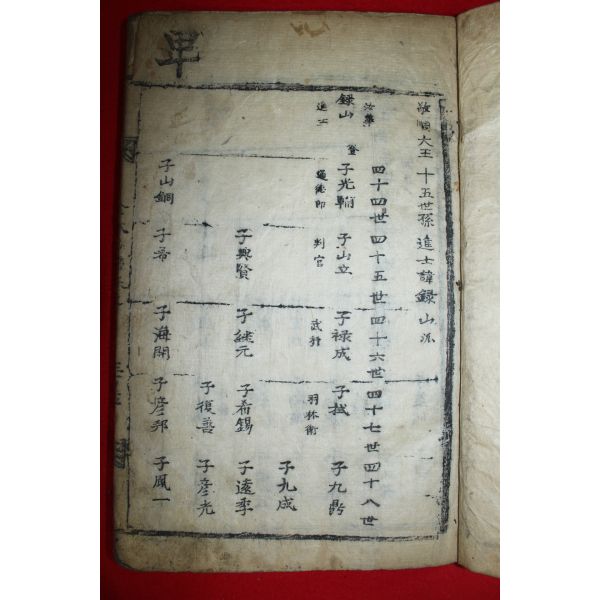 卑
敬順大王十五世孫進士諱錄山派
四十四世四十五世四十六世四十七世四十八世
汝華
錄山
進士
登
子光輔
通德郎
子山立
判官
子祿成
武科
子拭
羽林衛
子九鼎
子九成
子興賢
子繼元
子希錫
子遠季
子復善
子彦光
子山銅
子希
子海關
子彦邦
子鳳一